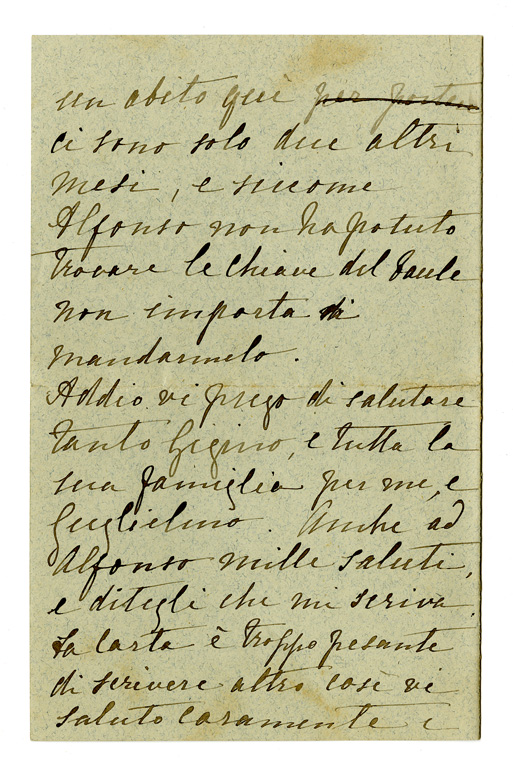 un abito quì per portar
ci sono solo due altri
mesi, e siccome
Alfonso non ha potuto
trovare le chiave del baule
non importa di
mandarmelo.
Addio vi prego di salutare
tanto Gigino, e tutta la
sua famiglia per me, e
Guglielmo. Anche ad
Alfonso mille saluti,
e ditegli che mi scriva.
La carta è troppo pesante
di scrivere altro così vi
saluto caramente e